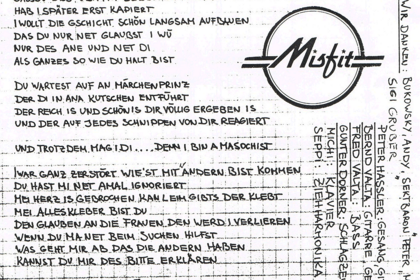 HAB I SPÄTER ERST KAPIERT
I WOLLT DIE GSCHICHT SCHÖN LANGSAM AUFBAUEN
DAS DU NUR NET GLAUBST I WÜ
NUR DES ANE UND NET DI
ALS GANZES SO WIE DU HALT BIST
DU WARTEST AUF AN MÄRCHENPRINZ
DER DI IN ANA KUTSCHEN ENTFÜHRT
DER REICH IS UND SCHÖN IS DIR VÖLLIG ERGEBEN IS
UND DER AUF JEDES SCHNIPPEN VON DIR REAGIERT
UND TROTZDEM MAG I DI....DENN I BIN A MASOCHIST
I WAR GANZ ZERSTÖRT WIE'ST MIT ANDERN BIST KOMMEN
DU HAST MI NET AMAL IGNORIERT
MEI HERZ IS GEBROCHEN KAN LEIM GIBTS DER KLEBT
MEI ALLESKLEBER BIST DU
DEN GLAUBEN AN DIE FRAUEN DEN WERD I VERLIEREN
WENN DU MA NET BEIM SUCHEN HILFST
WAS GEHT MIR AB DAS DIE ANDERN HABEN
KANNST DU MIR DES BITTE ERKLÄREN
Misfit
WIR DANKEN: BUKOWSKY, ANDY, SERTBARON, PETER
SIGI GRUBER
PETER HASSLER: GESANG, GI
BERND VALTA: GITARRE, GE
FRED VALTA: BASS
GÜNTER DORNER: SCHLAGZE
MICHI: KLAVIER
SEPPI: ZIEHHARMONIKA